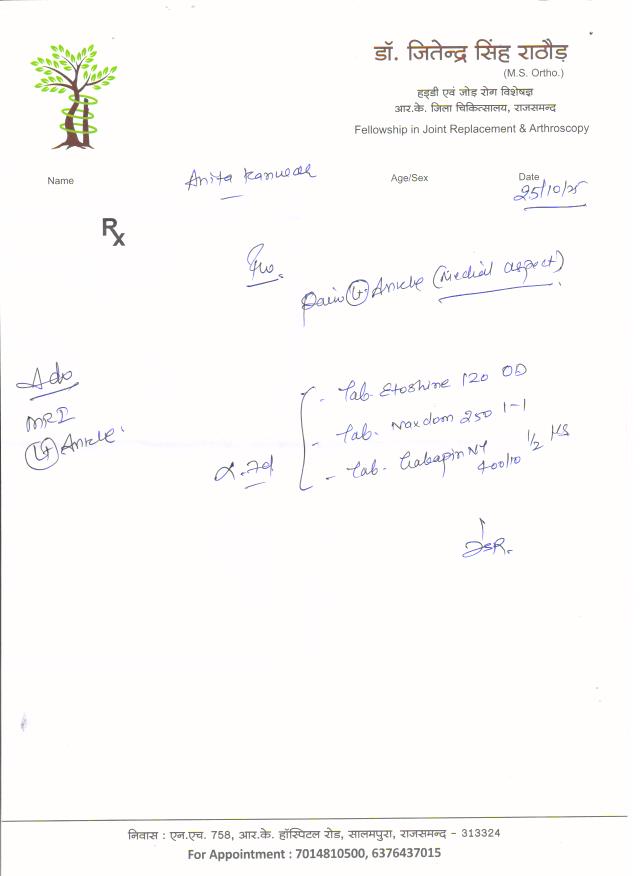 डॉ. जितेन्द्र सिंह राठौड़
(M.S. Ortho.)
हड्डी एवं जोड़ रोग विशेषज्ञ
आर.के. जिला चिकित्सालय, राजसमन्द
Fellowship in Joint Replacement & Arthroscopy
Name Anita Kanwar Age/Sex Date 25/10/25
Rx
Pain Lt Ankle (Medial aspect)
Adv
MRI
Lt Ankle
- Tab. Etoshine 120 OD
- Tab. Naxdom 250 1-1
- Tab. Gabapin NT 400/10 1/2 HS
x 7d
निवास : एन.एच. 758, आर.के. हॉस्पिटल रोड, सालमपुरा, राजसमन्द - 313324
For Appointment : 7014810500, 6376437015